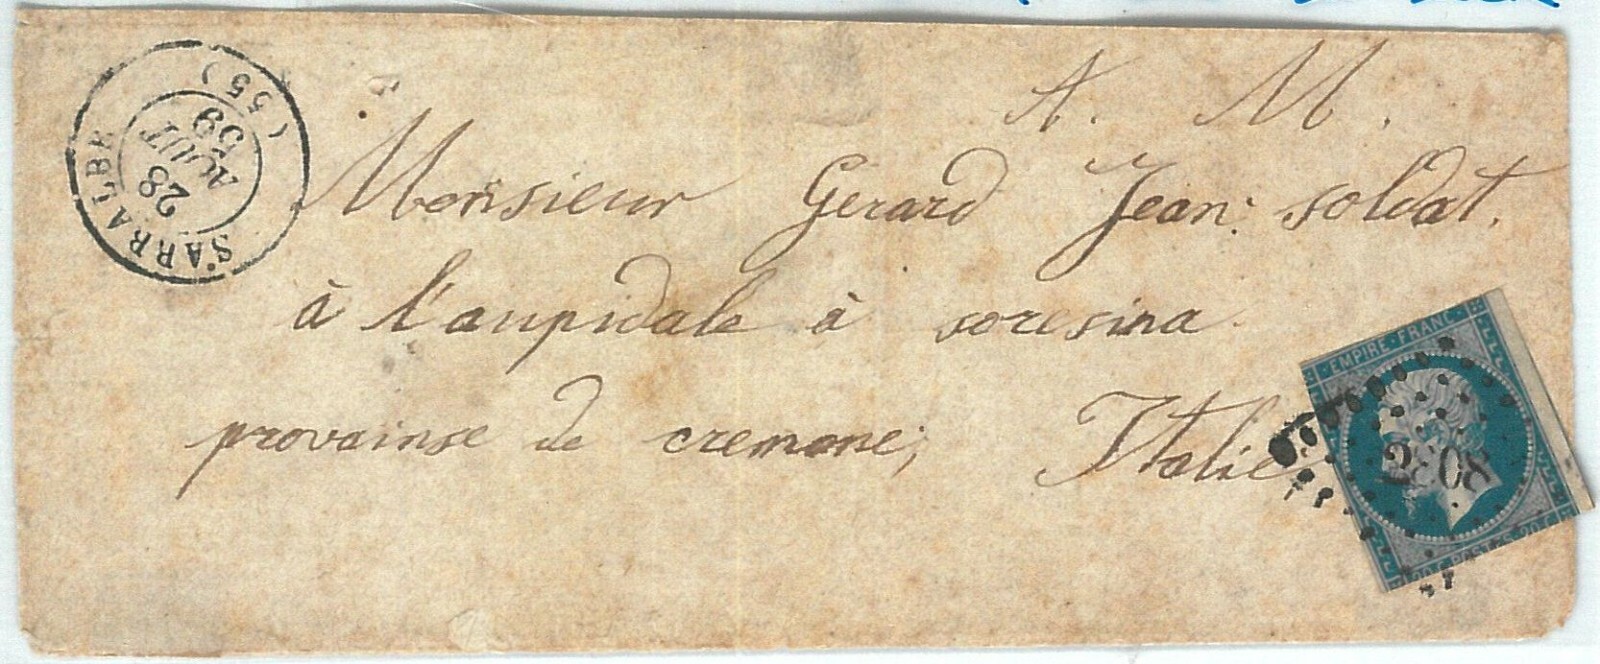 A. M.
Monsieur Gerard Jean: soldat.
à l'aupidale à soresina
provainse de cremone; Italie
SARRALBE
28
AOUT
59
(55)
EMPIRE · FRANC ·
20 C. POSTES 20 C.
2808